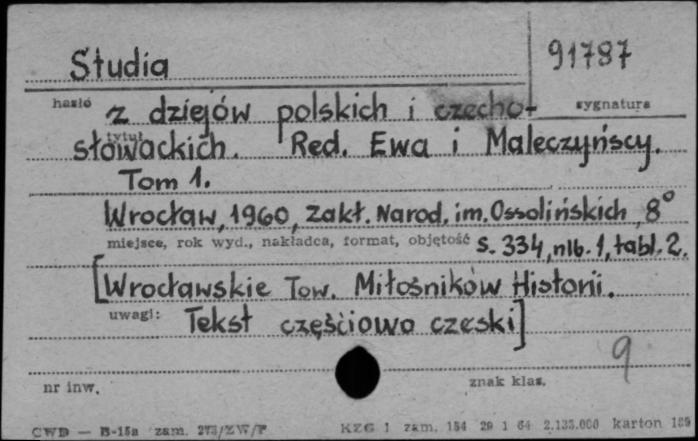 Studia
91787
hasło
z dziejów polskich i czecho-
sygnatura
tytuł
słowackich. Red. Ewa i Maleczyńscy.
Tom 1.
Wrocław, 1960, Zakł. Narod. im. Ossolińskich, 8°
miejsce, rok wyd., nakładca, format, objętość
s. 334, nlb. 1, tabl. 2.
[Wrocławskie Tow. Miłośników Historii.
uwagi:
Tekst częściowo czeski]
9
nr inw.
znak klas.
CWD — B-15a zam. 273/ZW/F
KZG 1 zam. 154 29 1 64 2.135.000 karton